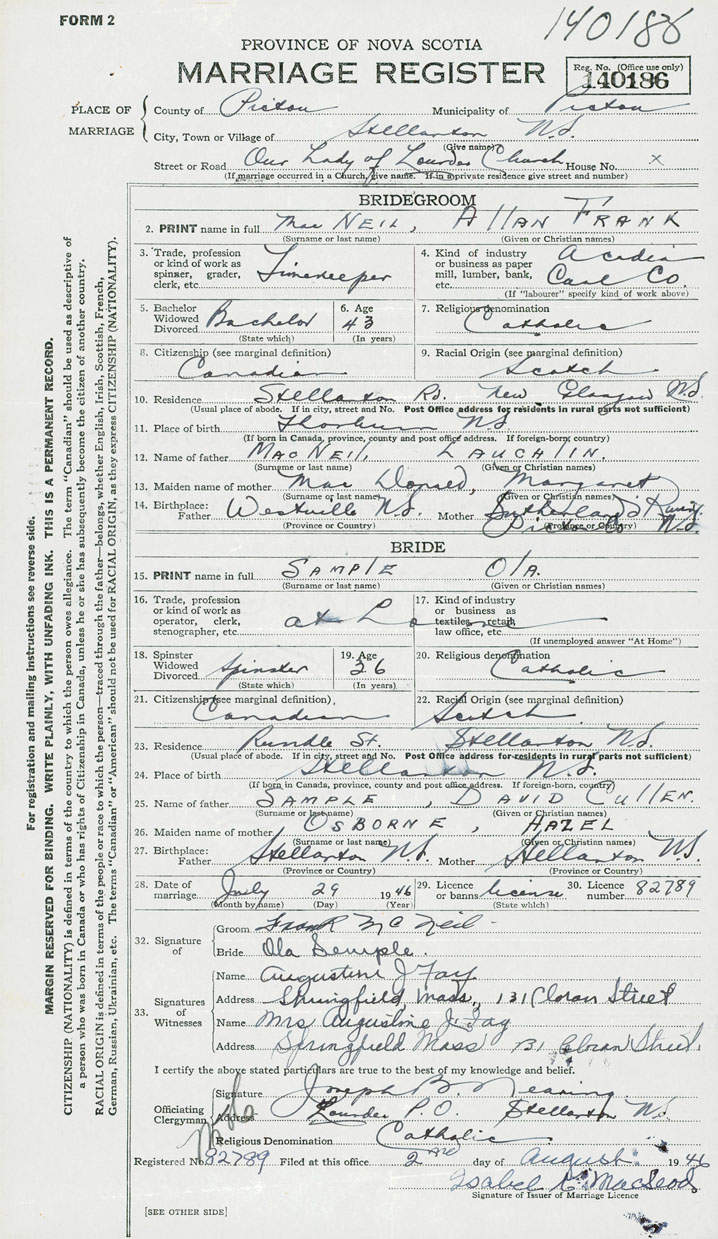 FORM 2
140186
PROVINCE OF NOVA SCOTIA
MARRIAGE REGISTER
Reg. No. (Office use only)
140186
PLACE OF MARRIAGE
County of Pictou Municipality of Pictou
City, Town or Village of Stellarton N.S.
(Give name)
Street or Road Our Lady of Lourdes Church House No. x
(If marriage occurred in a Church, give name. If in a private residence give street and number)
BRIDEGROOM
2. PRINT name in full Mac NEIL, AllAN FRANK
(Surname or last name) (Given or Christian names)
3. Trade, profession or kind of work as spinner, grader, clerk, etc. Timekeeper
4. Kind of industry or business as paper mill, lumber, bank, etc. Acadia Coal Co.
(If "labourer" specify kind of work above)
5. Bachelor Widowed Divorced Bachelor (State which)
6. Age 43 (In years)
7. Religious denomination Catholic
8. Citizenship (see marginal definition) Canadian
9. Racial Origin (see marginal definition) Scotch
10. Residence Stellarton Rd. New Glasgow N.S.
(Usual place of abode. If in city, street and No. Post Office address for residents in rural parts not sufficient)
11. Place of birth Thorburn N.S.
(If born in Canada, province, county and post office address. If foreign-born, country)
12. Name of father MACNEIL, LAUCHLIN.
(Surname or last name) (Given or Christian names)
13. Maiden name of mother Mac Donald, Margaret
(Surname or last name) (Given or Christian names)
14. Birthplace: Father Westville N.S. Mother Sutherland's River, Pictou Co N.S.
(Province or Country) (Province or Country)
BRIDE
15. PRINT name in full SAMPLE OlA.
(Surname or last name) (Given or Christian names)
16. Trade, profession or kind of work as operator, clerk, stenographer, etc. at Home
17. Kind of industry or business as textiles, retail, law office, etc.
(If unemployed answer "At Home")
18. Spinster Widowed Divorced Spinster (State which)
19. Age 36 (In years)
20. Religious denomination Catholic
21. Citizenship (see marginal definition) Canadian
22. Racial Origin (see marginal definition) Scotch
23. Residence Rundle St. Stellarton N.S.
(Usual place of abode. If in city, street and No. Post Office address for residents in rural parts not sufficient)
24. Place of birth Stellarton N.S.
(If born in Canada, province, county and post office address. If foreign-born, country)
25. Name of father SAMPLE, DAVID CullEN.
(Surname or last name) (Given or Christian names)
26. Maiden name of mother OSBORNE, HAZEL
(Surname or last name) (Given or Christian names)
27. Birthplace: Father Stellarton N.S. Mother Stellarton N.S.
(Province or Country) (Province or Country)
28. Date of marriage July 29 1946
(Month by name) (Day) (Year)
29. Licence or banns license (State which)
30. Licence number 82789
32. Signature of
Groom Frank McNeil
Bride Ola Semple.
33. Signatures of Witnesses
Name Augustine J Fay
Address Springfield Mass, 131 Cloran Street
Name Mrs Augustine J. Fay
Address Springfield Mass 131 Cloran Street.
I certify the above stated particulars are true to the best of my knowledge and belief.
Officiating Clergyman
Signature Joseph B. Nearing
Address Lourdes P.O. Stellarton N.S.
Religious Denomination Catholic
Registered No. 82789 Filed at this office 2nd day of August 1946
Isabel C. MacLeod
Signature of Issuer of Marriage Licence
[SEE OTHER SIDE]
For registration and mailing instructions see reverse side.
MARGIN RESERVED FOR BINDING. WRITE PLAINLY, WITH UNFADING INK. THIS IS A PERMANENT RECORD.
CITIZENSHIP (NATIONALITY) is defined in terms of the country to which the person owes allegiance. The term "Canadian" should be used as descriptive of
a person who was born in Canada or who has rights of Citizenship in Canada, unless he or she has subsequently become the citizen of another country.
RACIAL ORIGIN is defined in terms of the people or race to which the person—traced through the father—belongs, whether English, Irish, Scottish, French,
German, Russian, Ukrainian, etc. The terms "Canadian" or "American" should not be used for RACIAL ORIGIN, as they express CITIZENSHIP (NATIONALITY).